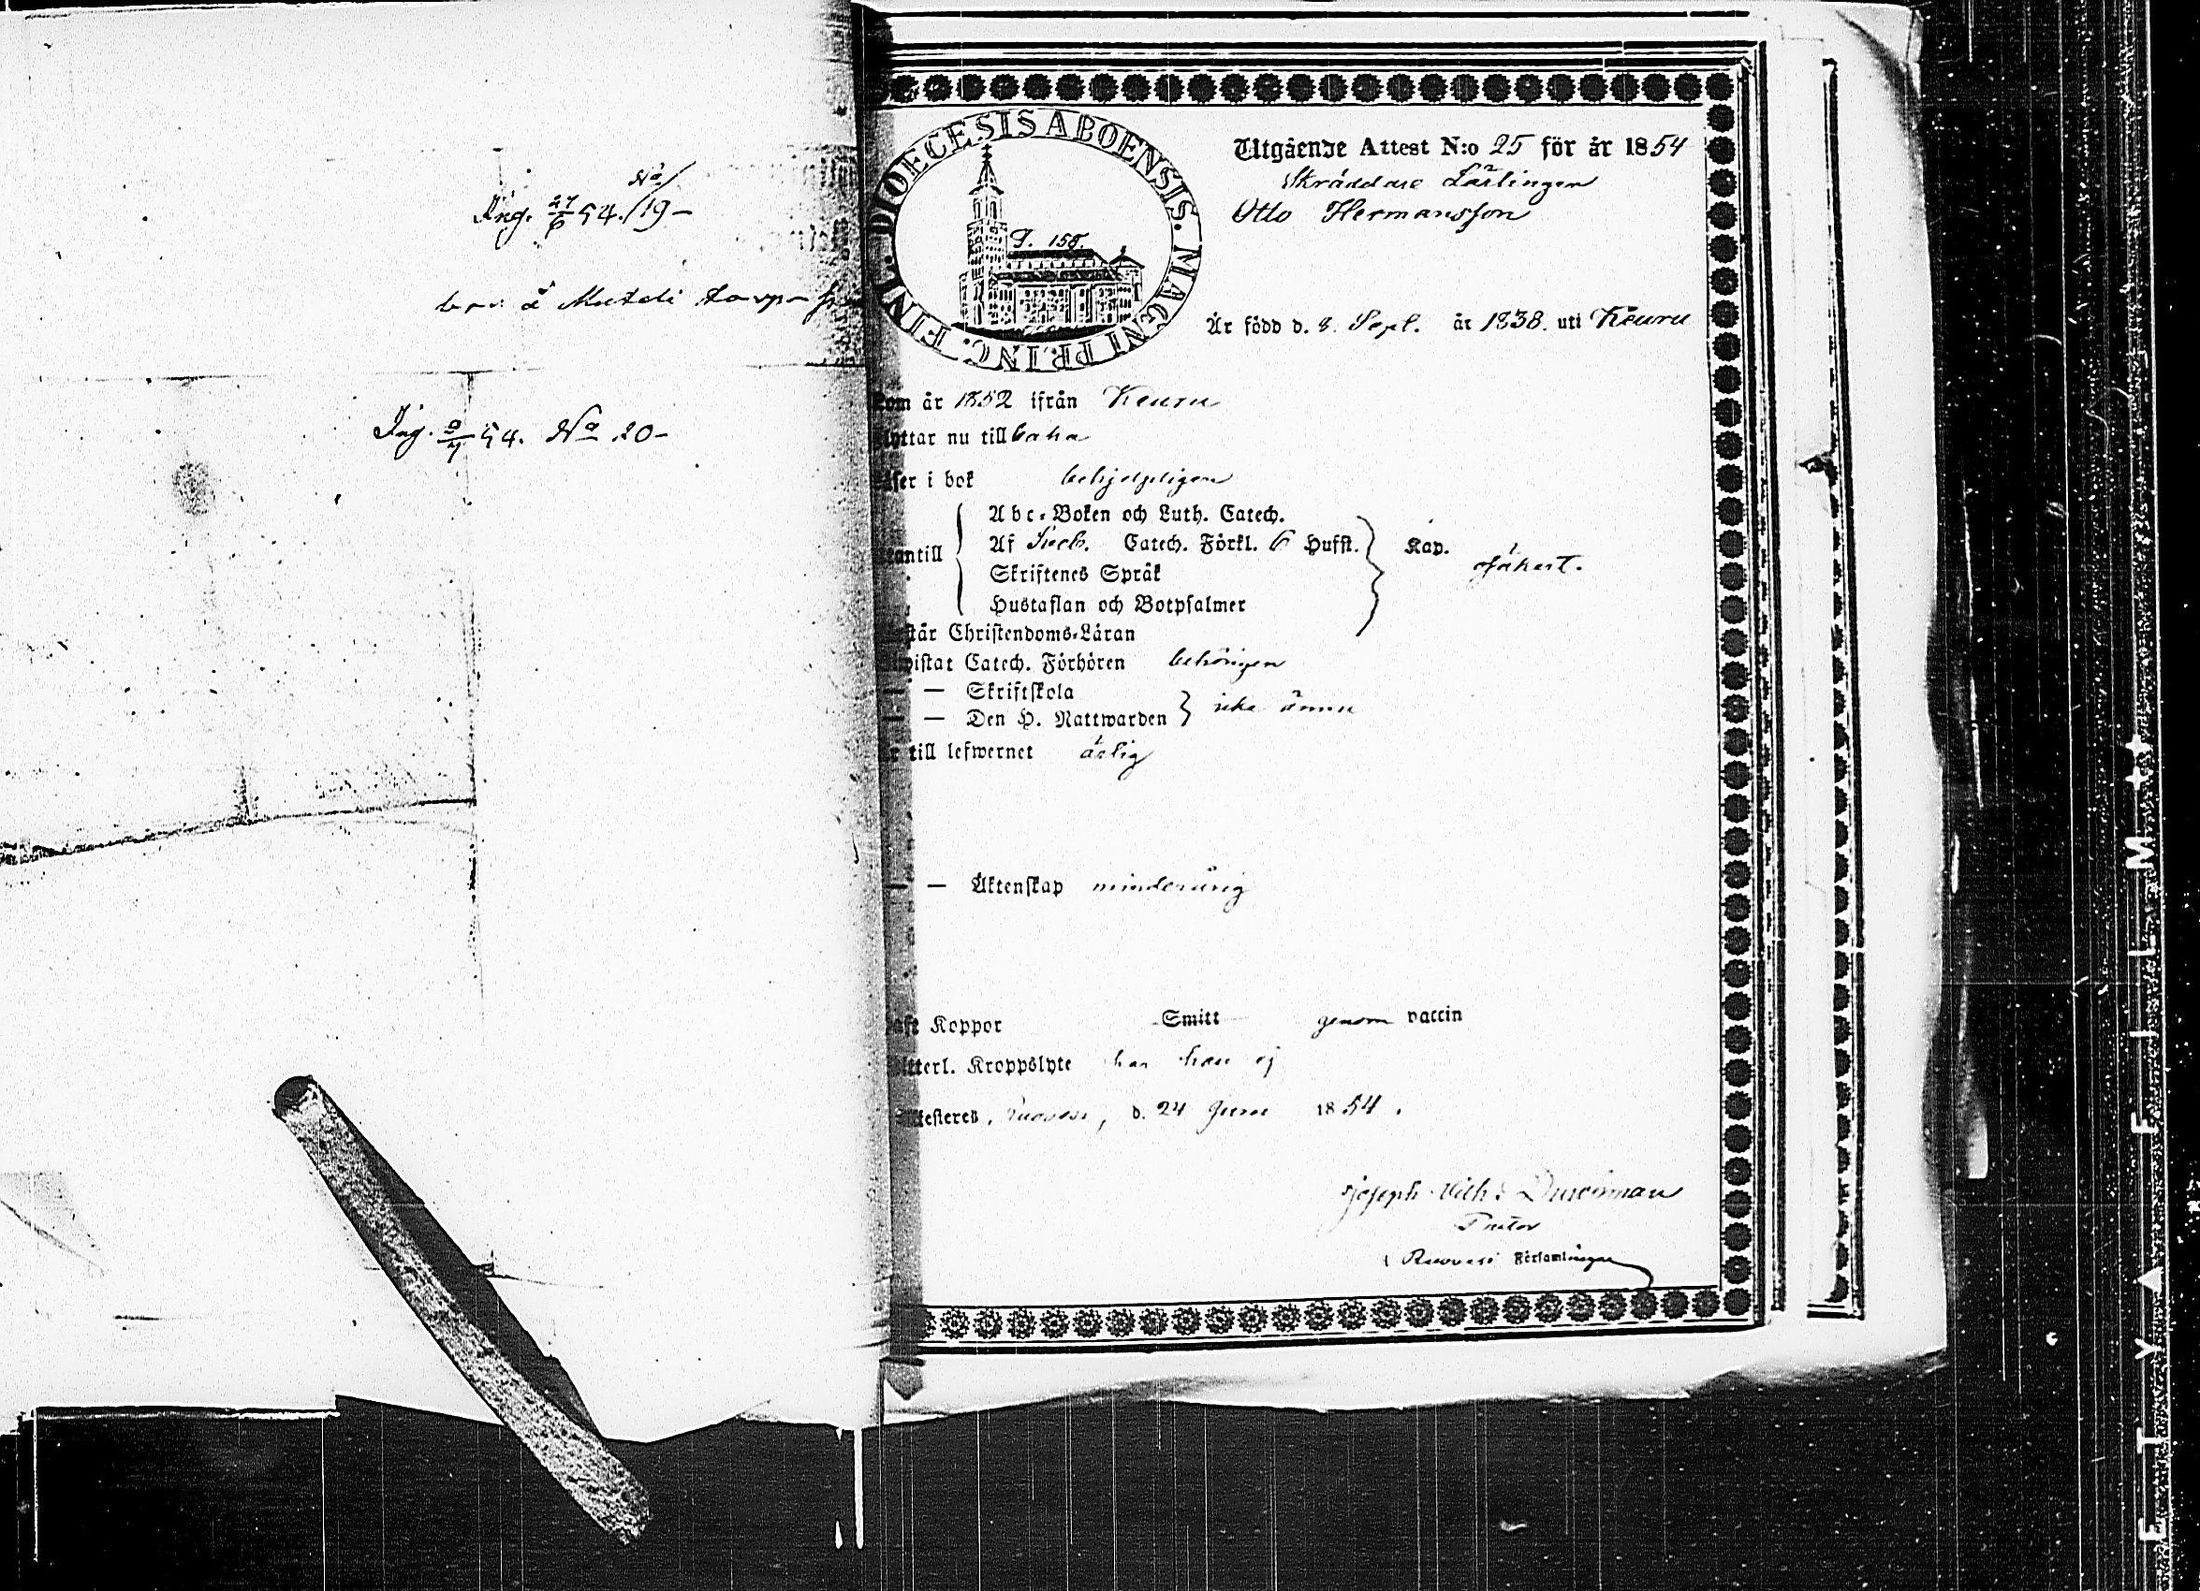 No
Ing. 27/6 54. /19-
bor. å Mutdi torp
Ing. 9/7 54. No 20-
DIOECESIS ABOENSIS. MAGNI PRINC. FINL.
P. 158.
Utgående Attest N:o 25 för år 1854
Skräddare Lärlingen
Otto Hermansson
Är född d. 8. Sept. år 1838. uti Keuru
Kom år 1852 ifrån Keuru
flyttar nu tillbaka
Läser i bok behjelpligen
Abc-Boken och Luth. Catech.
utantill Af Sveb. Catech. Förkl. 6 Hufst. Kap. osäkert.
Skriftenes Språk
Hustaflan och Botpsalmer
Förstår Christendoms-Läran
Bewistat Catech. Förhören behörigen
— — Skriftskola
— — Den H. Nattwarden icke ännu
Är till lefwernet ärlig
— — Äktenskap minderårig
Haft Koppor Smitt genom vaccin
Witterl. Kroppslyte har han ej
Attesteres, Ruovesi, d. 24 Juni 1854.
Joseph Wilh: Durchman
Pastor
i Ruovesi Församlingar
ETY▲ FILMI